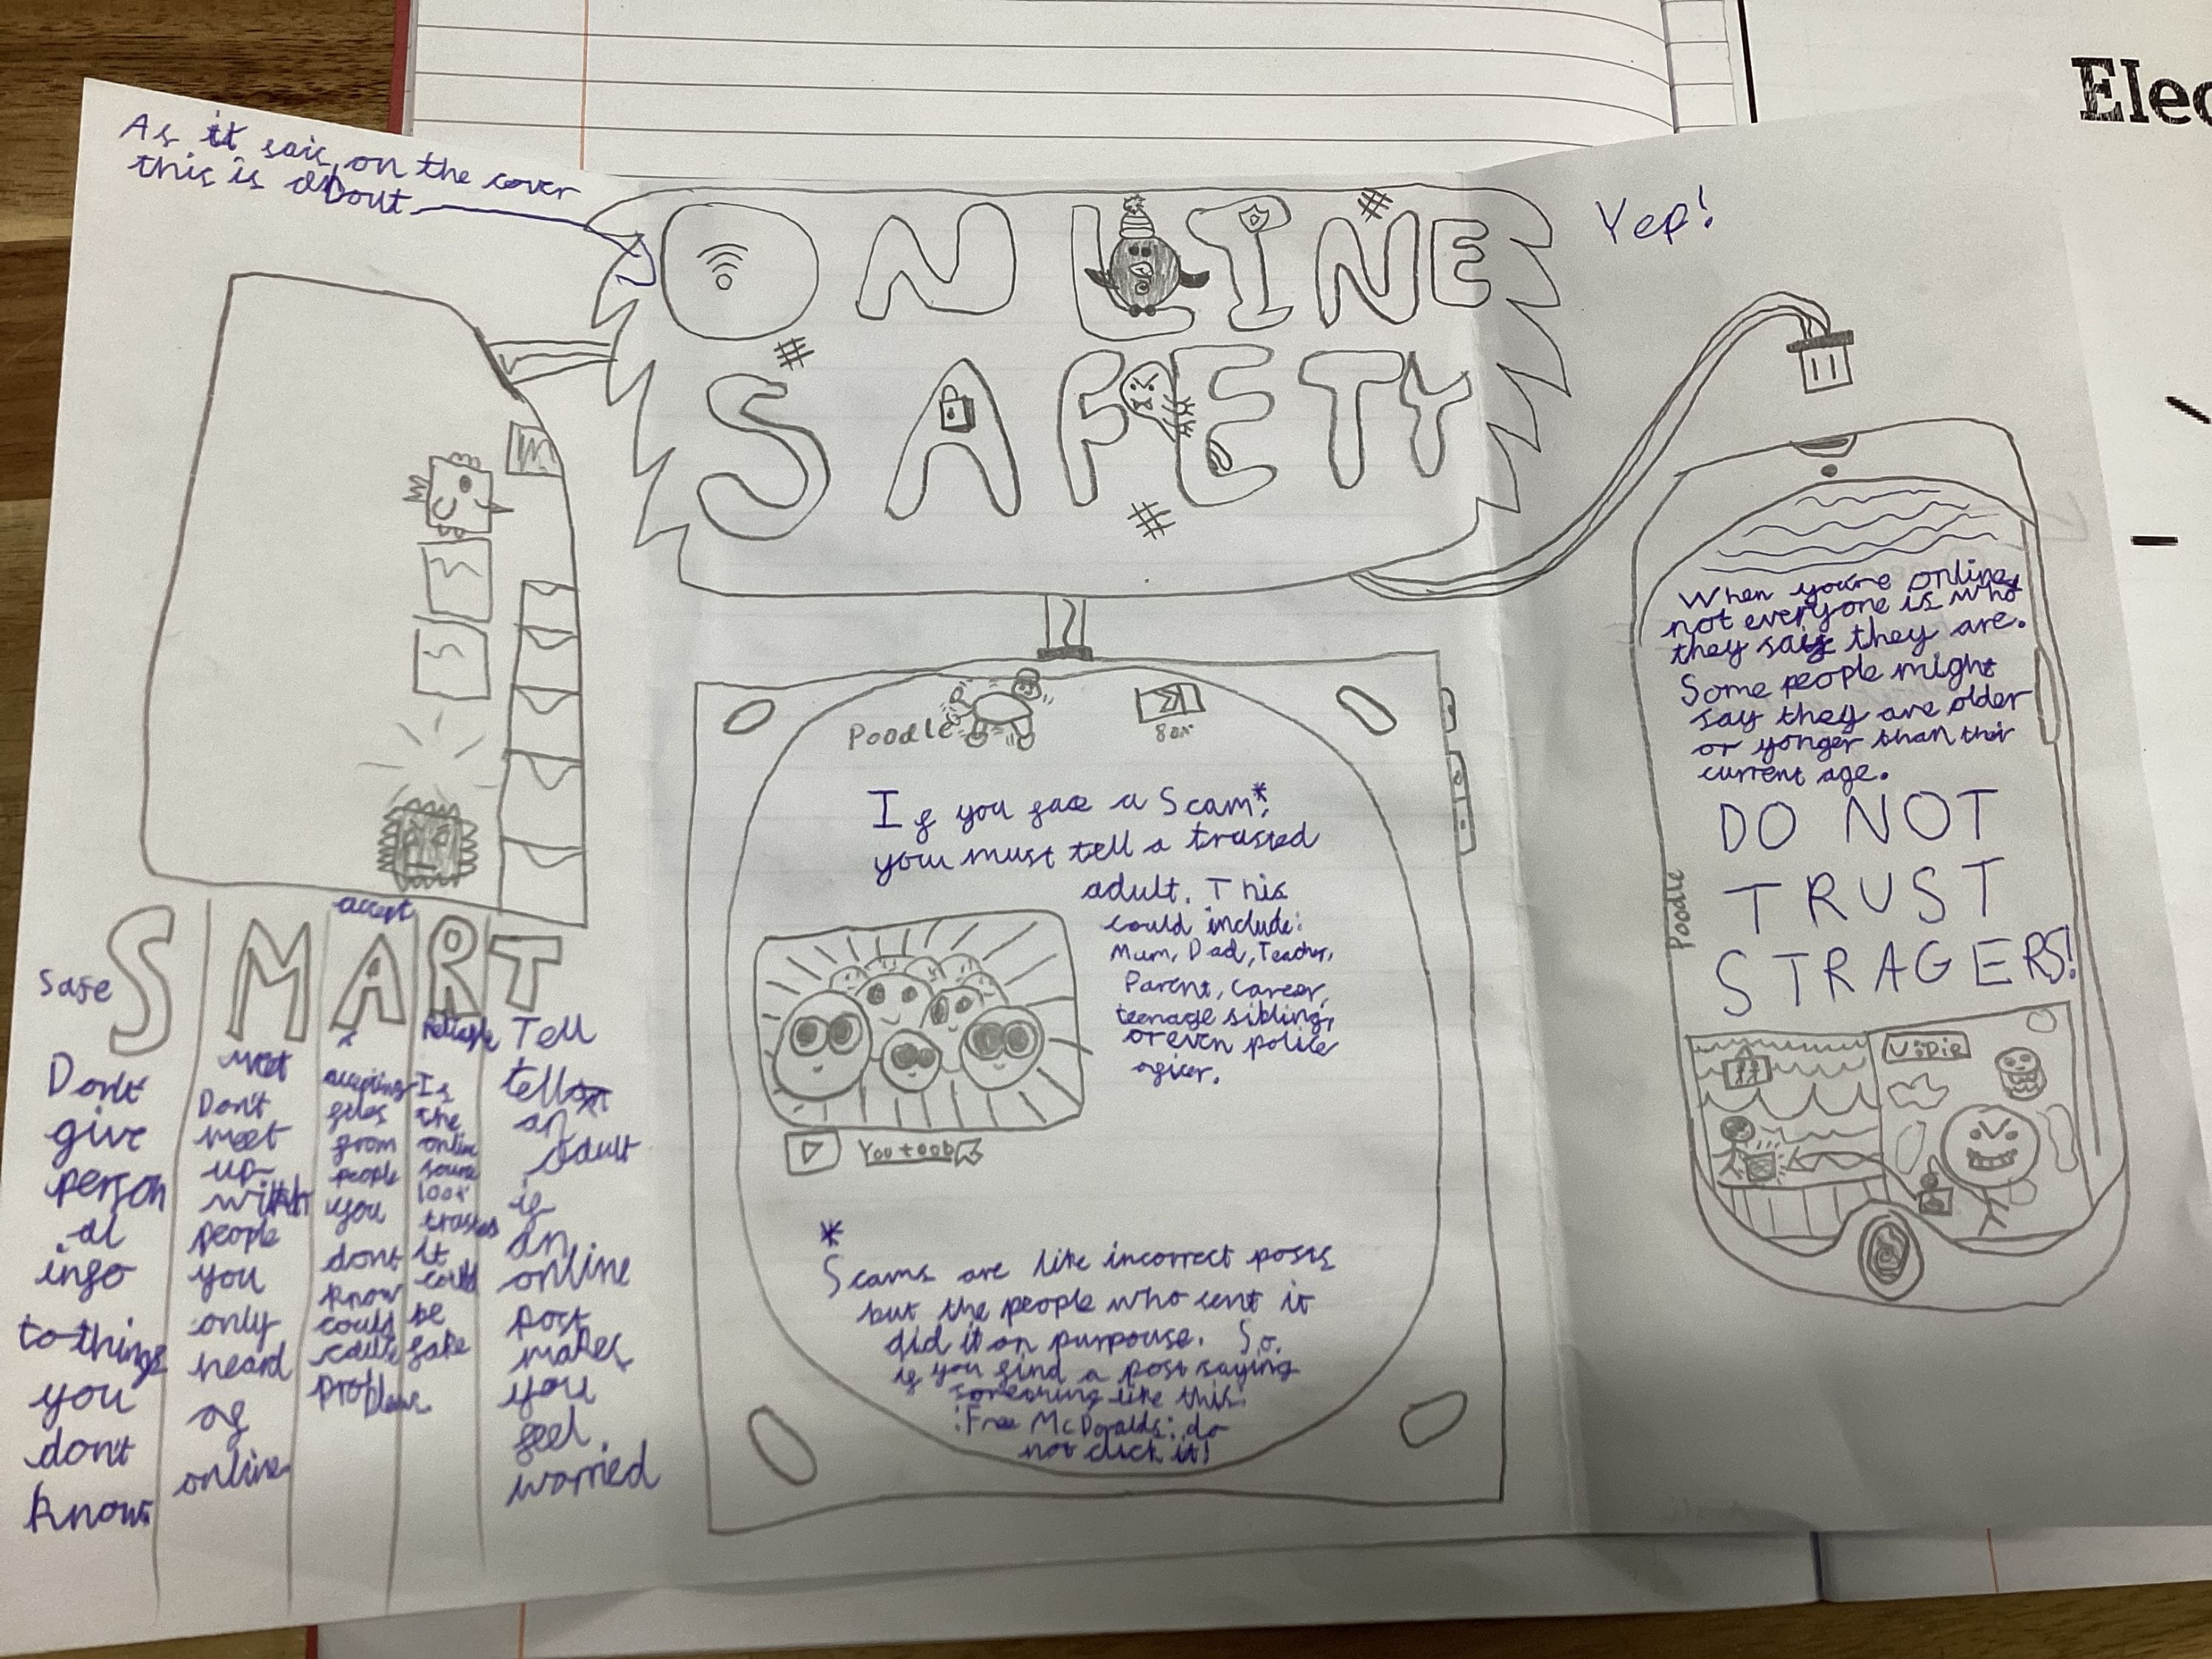 Elec
As it said, on the cover
this is about
ONLINE
SAFETY
Yep!
accept
SMART
Safe
Don't
give
person
al
info
to things
you
don't
know.
meet
Don't
meet
up
with
people
you
only
heard
of
online
accepting
files
from
people
you
dont
know
could
cause
problems
reliable
Is
the
online
source
look
trusted
it
could
be
fake
Tell
tell
an
adult
if
an
online
post
makes
you
feel
worried
Poodle
If you face a Scam*,
you must tell a trusted
adult. This
could include:
Mum, Dad, Teacher,
Parent, Career,
teenage sibling,
or even police
oficer.
Youtoob
*
Scams are like incorrect posts
but the people who sent it
did it on purpouse. So.
if you find a post saying
something like this:
:Free McDonalds: do
not click it!
When you're online,
not everyone is who
they say they are.
Some people might
say they are older
or yonger than thir
current age.
DO NOT
TRUST
STRAGERS!
Poodle